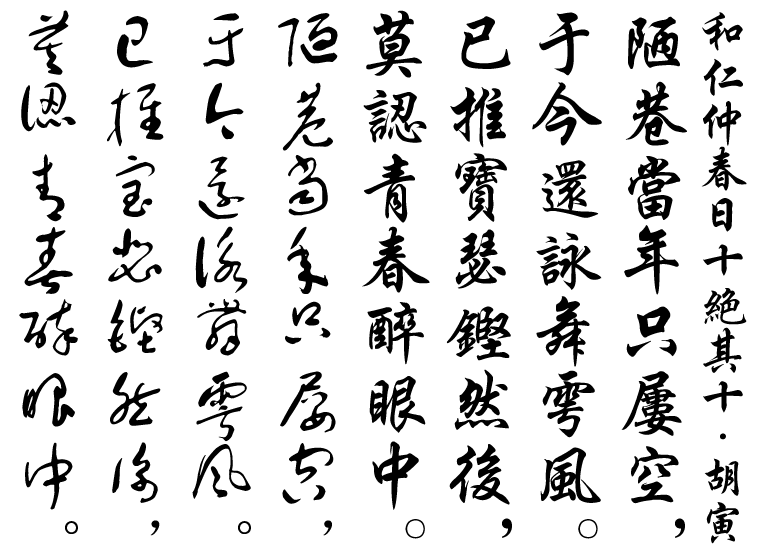 和仁仲春日十絶其十．胡寅
陋巷當年只屢空，
于今還詠舞雩風。
已推寶瑟鏗然後，
莫認青春醉眼中。
陋巷當年只屢空，
于今還詠舞雩風。
已推寶瑟鏗然後，
莫認青春醉眼中。